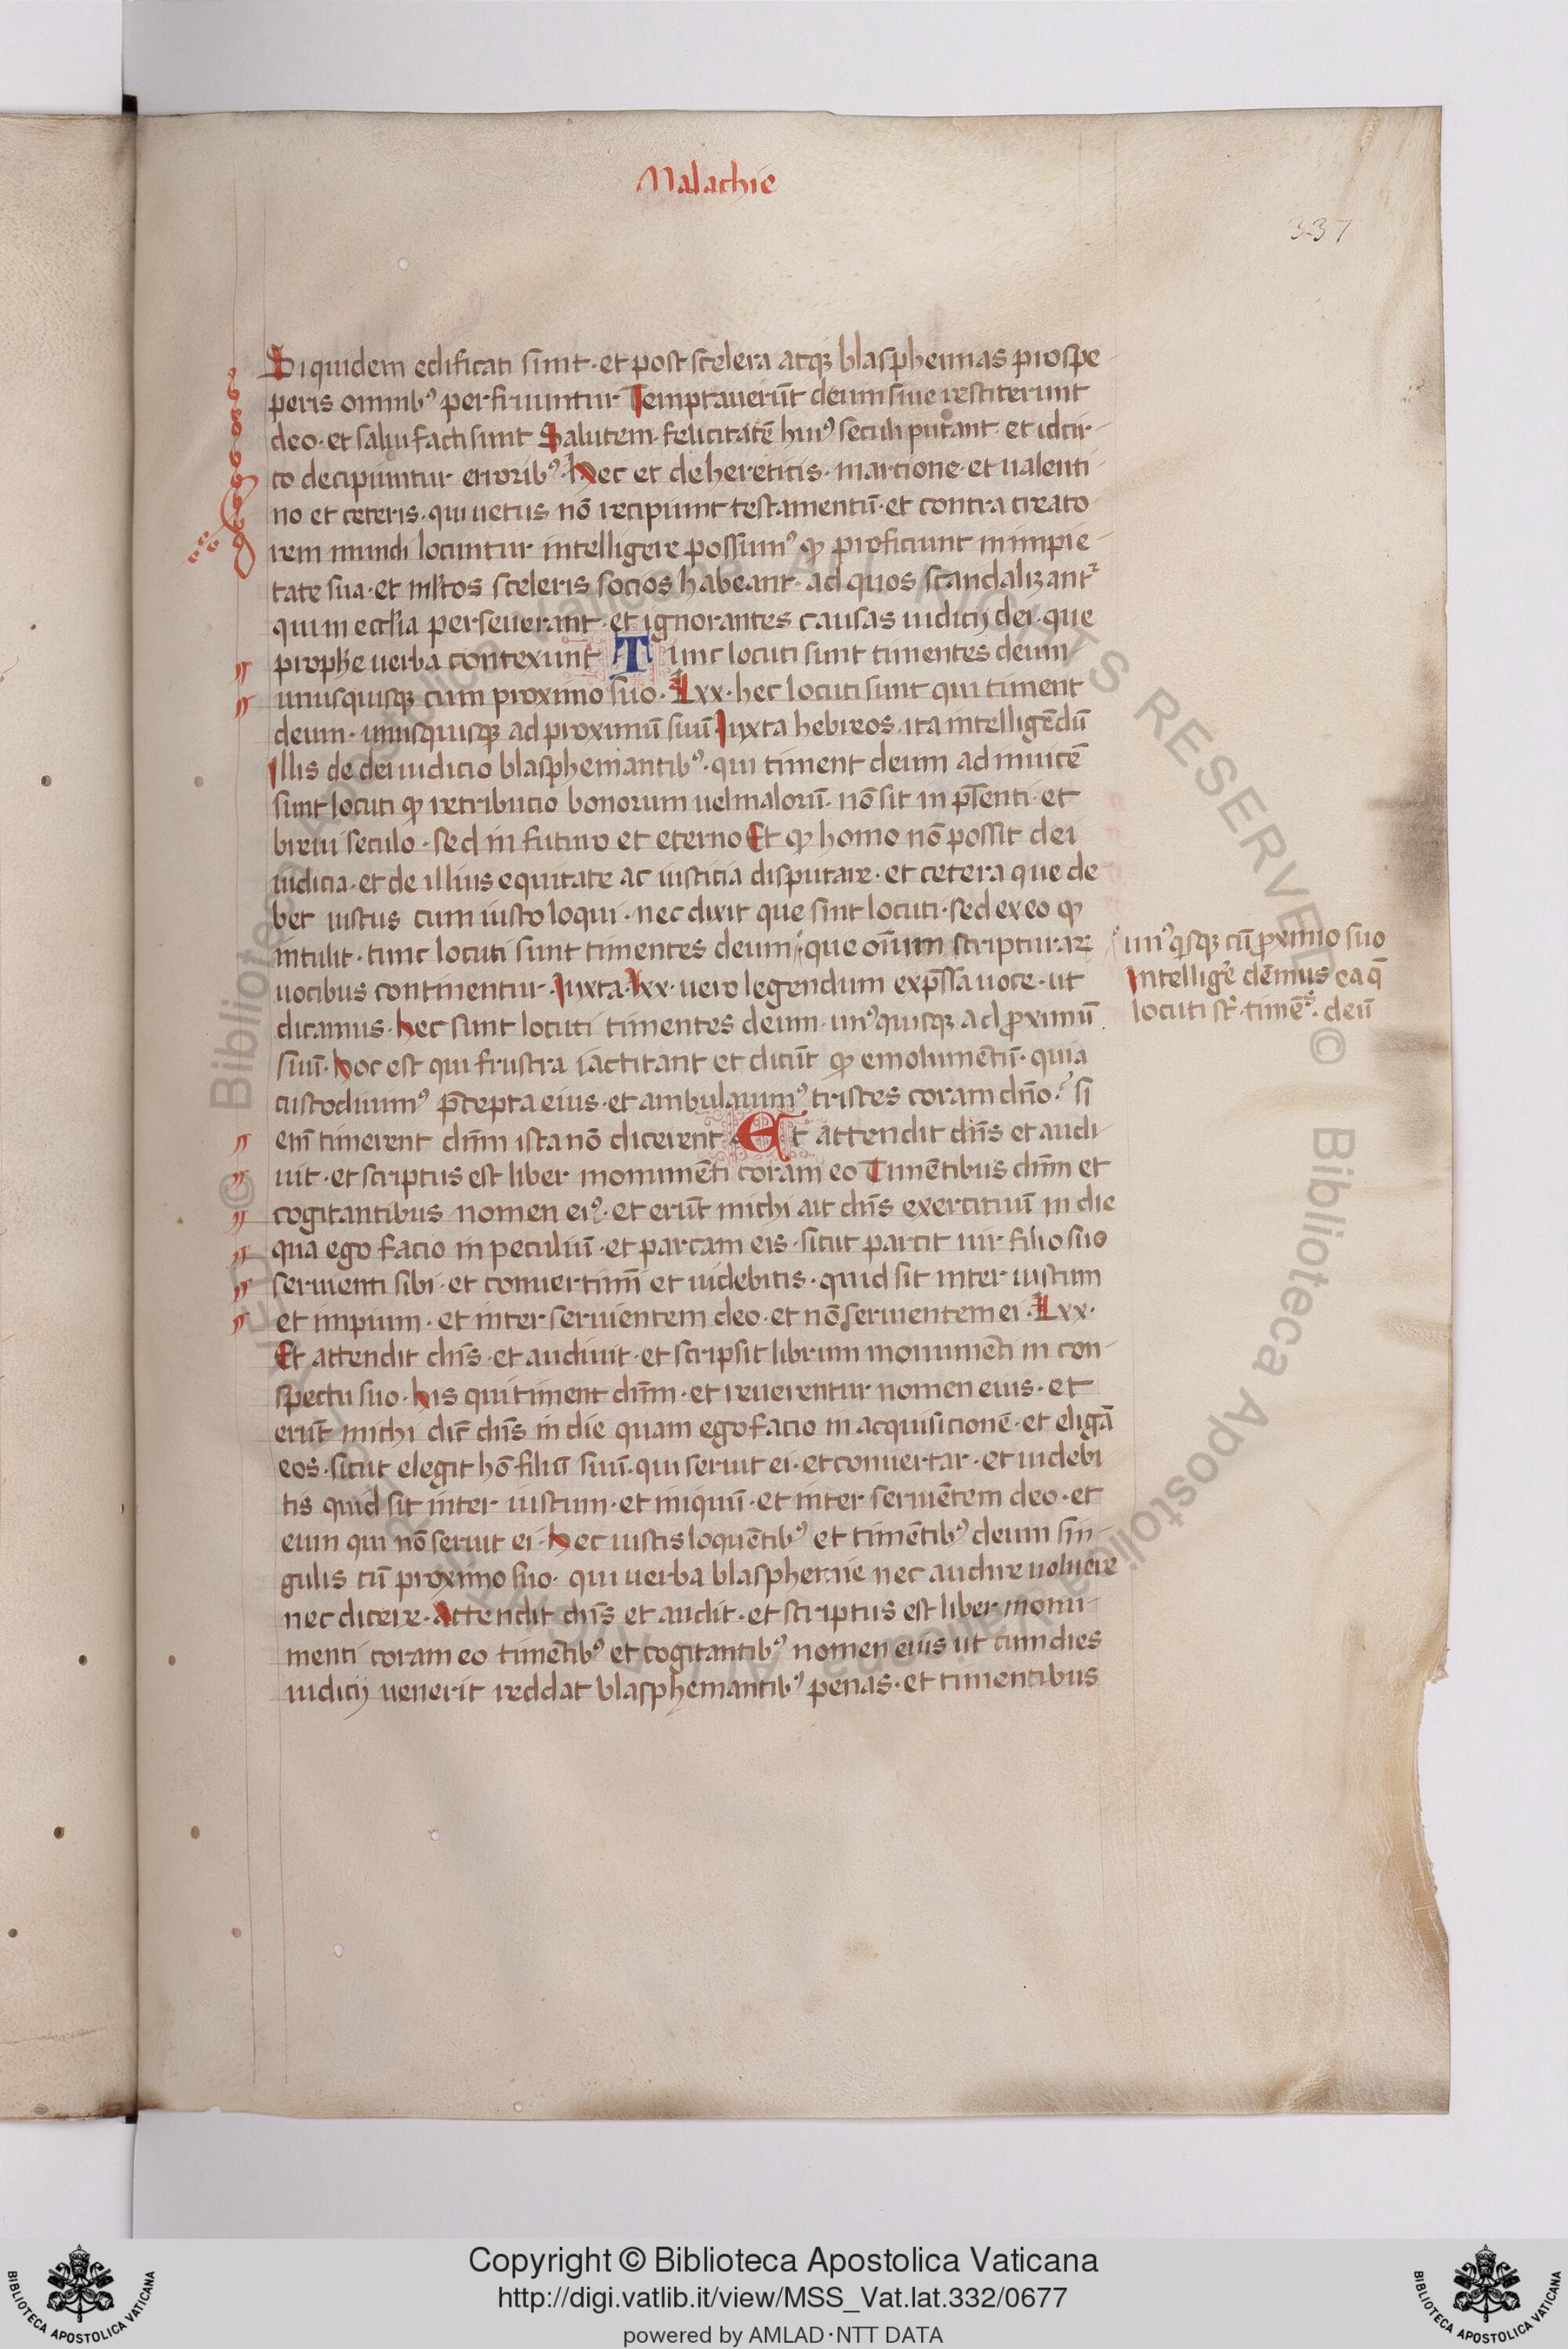 Malachie
337
Siquidem edificati sunt · et post scelera atqꝫ blasphemias prospe
peris omnibꝰ perfruuntur Temptauerūt deum siue restiterunt
deo · et salui facti sunt Salutem · felicitatē huiꝰ seculi putant et idcir-
co decipiuntur erroribꝰ · hec et de hereticis · marcione · et ualenti-
no et ceteris · qui uetus nō recipiunt testamentū · et contra creato
rem mundi locuntur intelligere possumꝰ ꝙ proficiunt in impie-
tate sua · et istos sceleris socios habeant · ad quos scandalizant᷑
qui in eccl̄ia perseuerant · et ignorantes causas iudicij dei · que
prophe uerba contexunt Tunc locuti sunt timentes deum
unusquisqꝫ cum proximo suo · Lxx · hec locuti sunt qui timent
deum · unusquisqꝫ ad proximū suū Iuxta hebreos · ita intelligēdū
Illis de dei iudicio blasphemantibꝰ · qui timent deum ad inuicē
sunt locuti ꝙ retributio bonorum uel malorū · nō sit in p̄senti · et
breui seculo · sed in futuro et eterno Et ꝙ homo nō possit dei
iudicia · et de illius equitate ac iusticia disputare · et cetera que de
bet iustus cum iusto loqui · nec dixit que sint locuti · sed ex eo ꝙ
intulit · tunc locuti sunt timentes deum · que om̄ium scripturaꝝ
unꝰqsqꝫ cū ꝓximo suo
Intelligē dēmus ea q̄
locuti st̄ · timēs · deū
uocibus continentur · Iuxta · Lxx · uero legendum exp̄ssa uoce · ut
dicamus · hec sunt locuti timentes deum · unꝰquisqꝫ ad ꝓximū
suū · hoc est qui frustra iactitant et dicūt ꝙ emolumentū · quia
custodiuimꝰ p̄cepta eius · et ambulauimꝰ tristes coram dn̄o · si
eni᷑ timerent dn̄m ista nō dicerent Et attendit dn̄s et audi-
uit · et scriptus est liber monumēti coram eo Timētibus dn̄m et
cogitantibus nomen eiꝰ · et erūt michi ait dn̄s exercituū in die
qua ego facio in peculiū · et parcam eis · sicut parcit uir filio suo
seruienti sibi · et conuertimi᷑ et uidebitis · quid sit inter iustum
et impium · et inter seruientem deo · et nō seruientem ei · Lxx ·
Et attendit dn̄s · et audiuit · et scripsit librum monumēti in con-
spectu suo · his qui timent dn̄m · et reuerentur nomen eius · et
erūt michi dic̄ dn̄s in die quam ego facio in acquisicionē · et eligā
eos · sicut elegit hō filiū suū · qui seruit ei · et conuertar · et uidebi
tis quid sit inter iustum · et iniquū · et inter seruiētem deo · et
eum qui nō seruit ei · hec iustis loquētibꝰ et timētibꝰ deum sin-
gulis cū proximo suo · qui uerba blasphemie nec audire uoluere
nec dicere · Attendit dn̄s et audit · et scriptus est liber monu-
menti coram eo timētibꝰ et cogitantibꝰ nomen eius ut cum dies
iudicij uenerit reddat blasphemantibꝰ penas · et timentibus
Copyright © Biblioteca Apostolica Vaticana
http://digi.vatlib.it/view/MSS_Vat.lat.332/0677
powered by AMLAD·NTT DATA
BIBLIOTECA APOSTOLICA VATICANA
BIBLIOTECA APOSTOLICA VATICANA